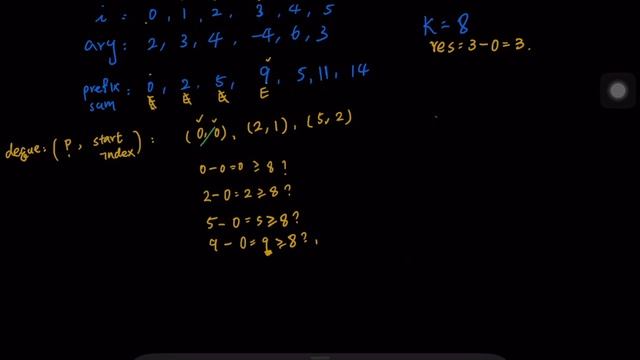 i: 0, 1, 2, 3, 4, 5
ary: 2, 3, 4, -4, 6, 3
K = 8
res = 3-0 = 3.
prefix sum: 0, 2, 5, 9, 5, 11, 14
E E E E
deque: (P, start index): (0, 0), (2, 1), (5, 2)
0-0=0 ≥ 8 ?
2-0=2 ≥ 8 ?
5-0=5 ≥ 8 ?
9-0=9 ≥ 8 ?,